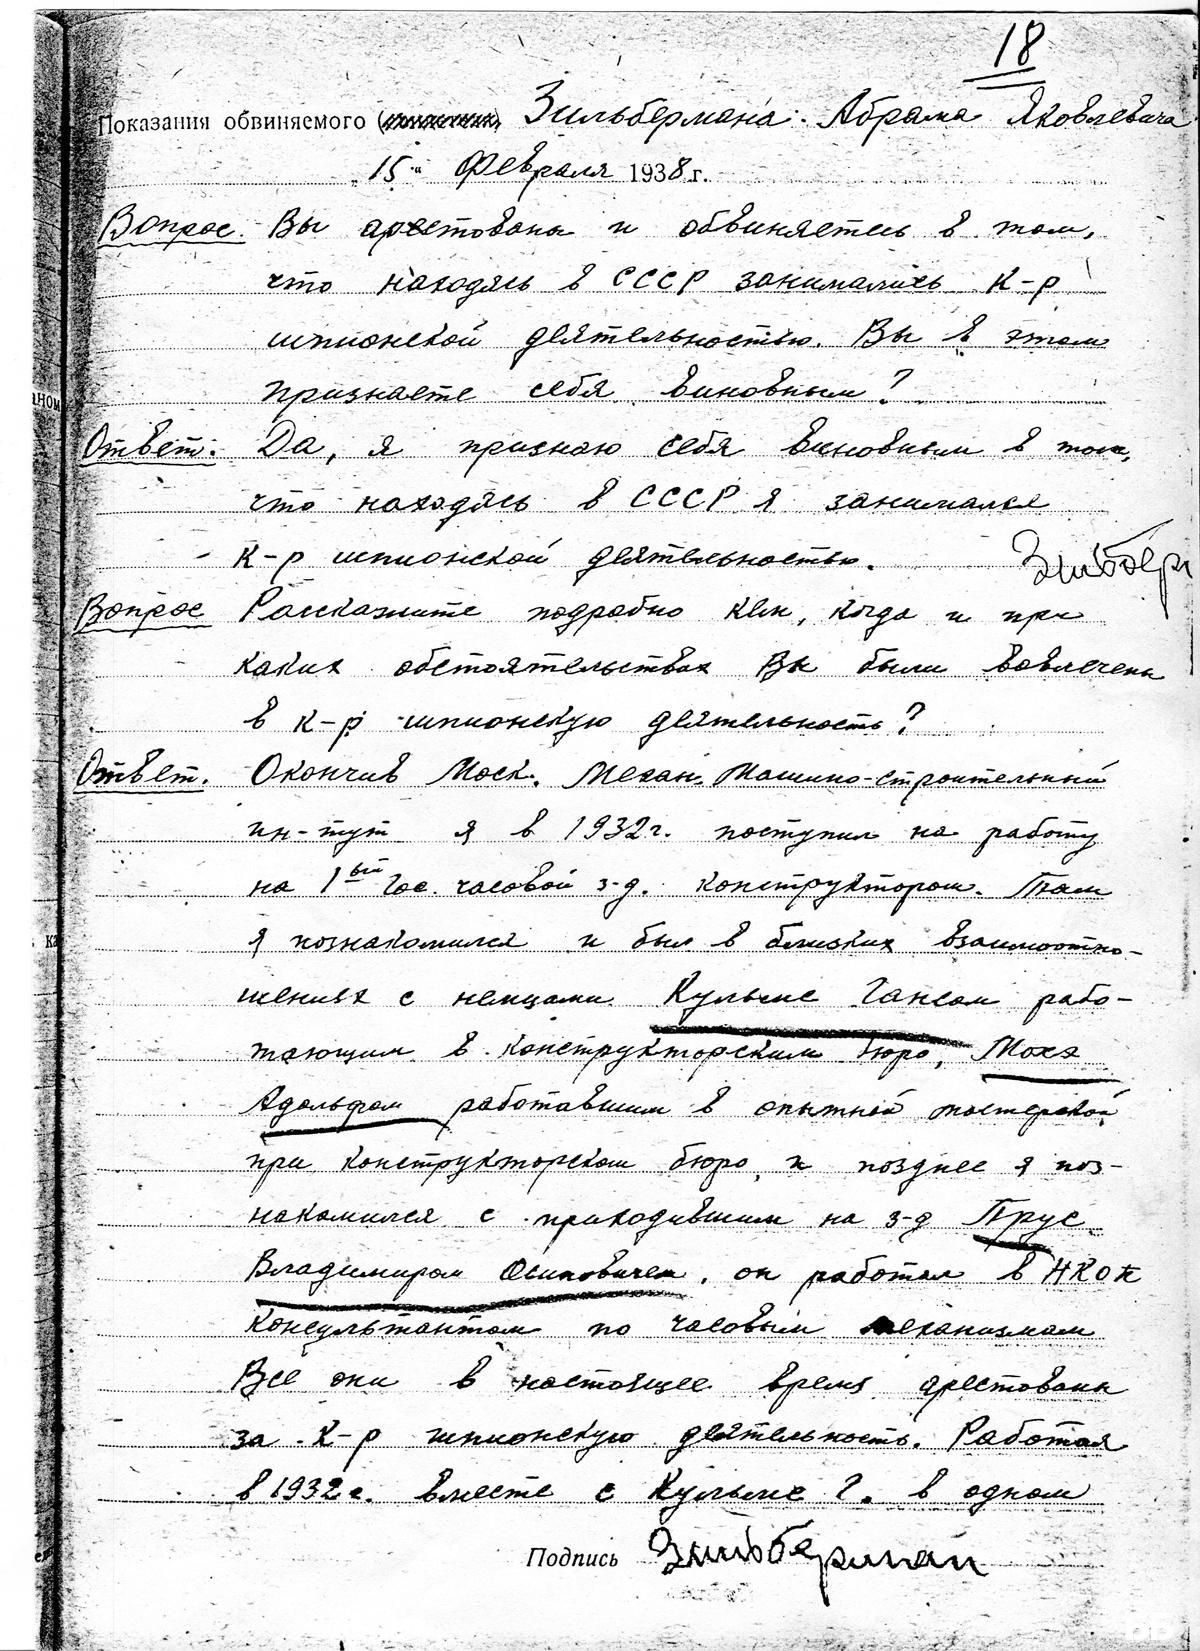 18
Показания обвиняемого Зильбермана Абрама Яковлевича
„15“ февраля 1938 г.
Вопрос. Вы арестованы и обвиняетесь в том,
что находясь в СССР занимались К-р
шпионской деятельностью. Вы в этом
признаете себя виновным?
Ответ: Да, я признаю себя виновным в том,
что находясь в СССР я занимался
к-р шпионской деятельностью. Зильбер
Вопрос Расскажите подробно как, когда и при
каких обстоятельствах Вы были вовлечены
в к-р шпионскую деятельность?
Ответ. Окончив Моск. Механ. Машино-строительный
ин-тут я в 1932г. поступил на работу
на 1ый Гос. часовой з-д. конструктором. Там
я познакомился и был в близких взаимоотно-
шениях с немцами Кульме Гансом рабо-
тающим в конструкторским бюро, Моха
Адольфом работавшим в опытной мастерской
при конструкторском бюро, и позднее я поз-
накомился с приходившим на з-д Прус
Владимиром Осиповичем, он работал в НКОП
консультантом по часовым механизмам
Все они в настоящее время арестованы
за К-р шпионскую деятельность. Работая
в 1932г. вместе с Кульме Г. в одном
Подпись Зильберман